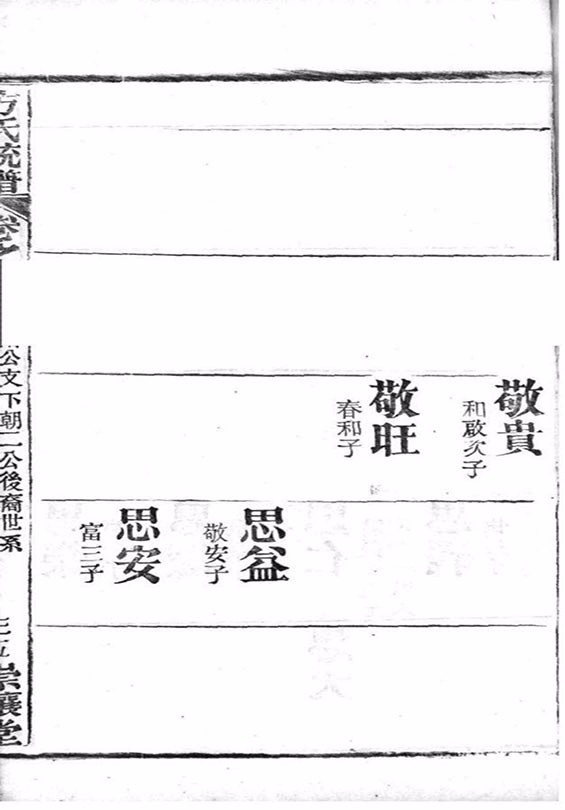 敬貴
和啟次子
敬旺
春和子
思益
敬安子
思安
富三子
方氏統譜
公支下朝二公後裔世系
崇讓堂